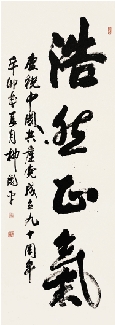 浩然正氣
慶祝中國共產党成立九十周年
辛卯年夏月柳國平